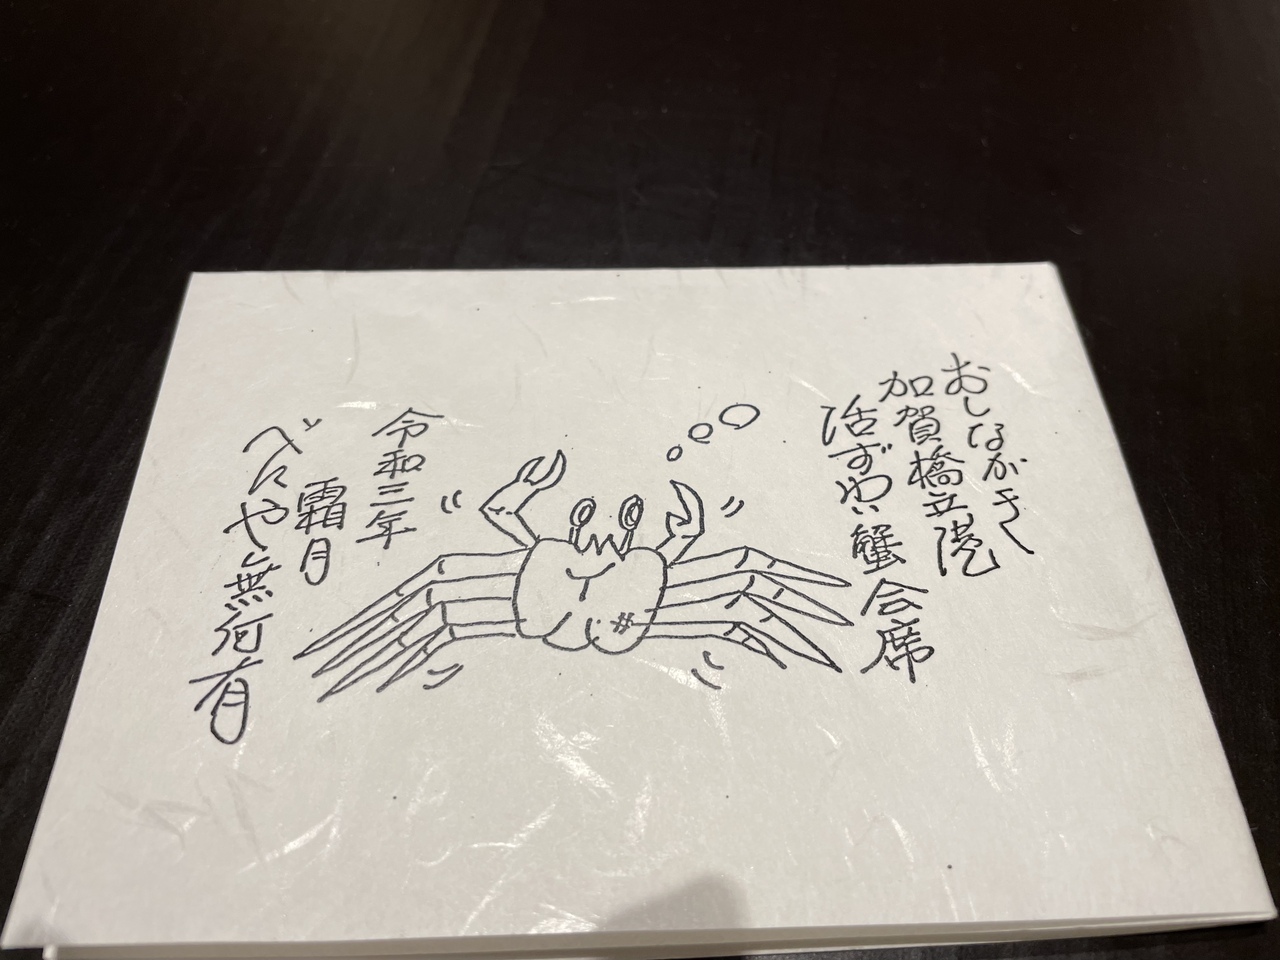 おしながき
加賀橋立港
活ずわい蟹会席
令和三年
霜月
べにや無何有